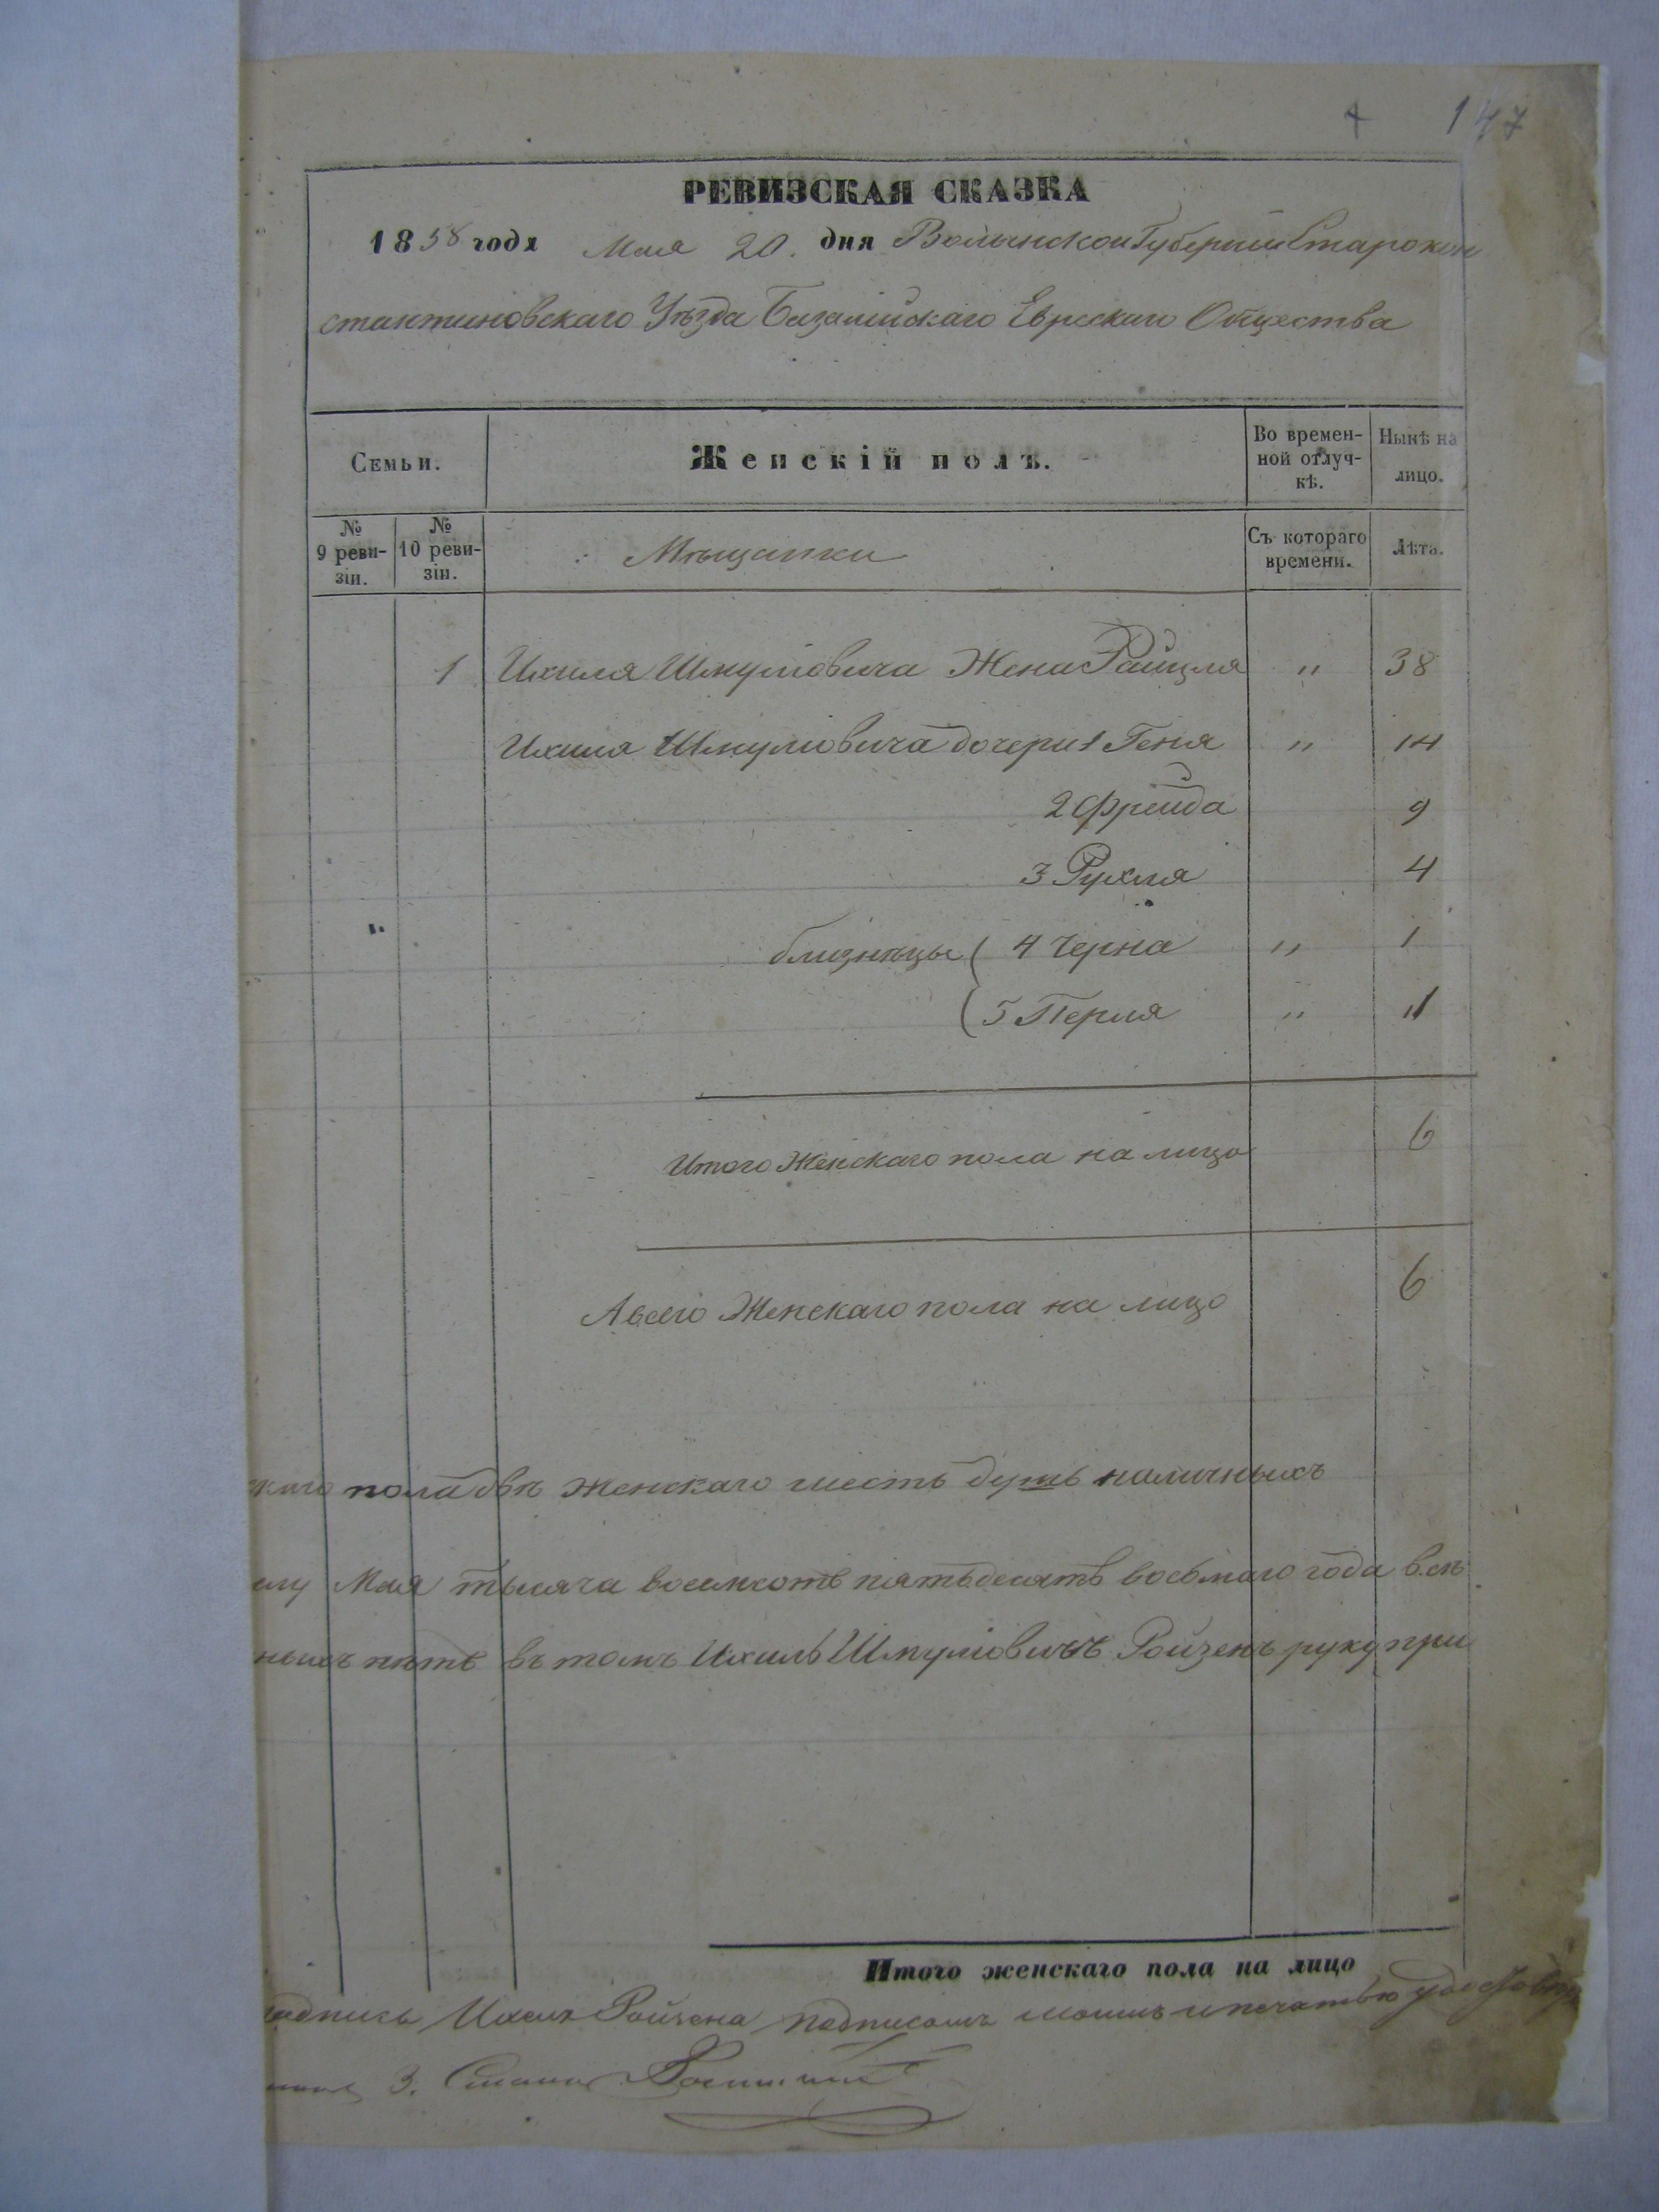 147
РЕВИЗСКАЯ СКАЗКА
1858 года Мая 20. дня Волынской Губернии Старокон
стантиновскаго Уѣзда Базалійскаго Еврескаго Общества
Семьи.
Женскій полъ.
Во времен-
ной отлуч-
кѣ.
Нынѣ на
лицо.
№
9 реви-
зіи.
№
10 реви-
зіи.
Мѣщанки
Съ котораго
времени.
Лѣта.
1 Ихиля Шмуліовича Жена Райцля " 38
Ихиля Шмуліовича дочери 1 Геня " 14
2 Фрейда 9
3 Рухля 4
" близнецы ( 4 Черна " 1
( 5 Перля " 1
Итого Женскаго пола на лицо 6
А всего Женскаго пола на лицо 6
скаго пола двѣ Женскаго шесть душъ наличныхъ
Мая тысяча восемсотъ пятьдесятъ восьмаго года
пять въ томъ Ихиль Шмуліовичъ Ройзенъ руку при
Итого женскаго пола на лицо
подпись Ройзена подписомъ моимъ и печатью
З.